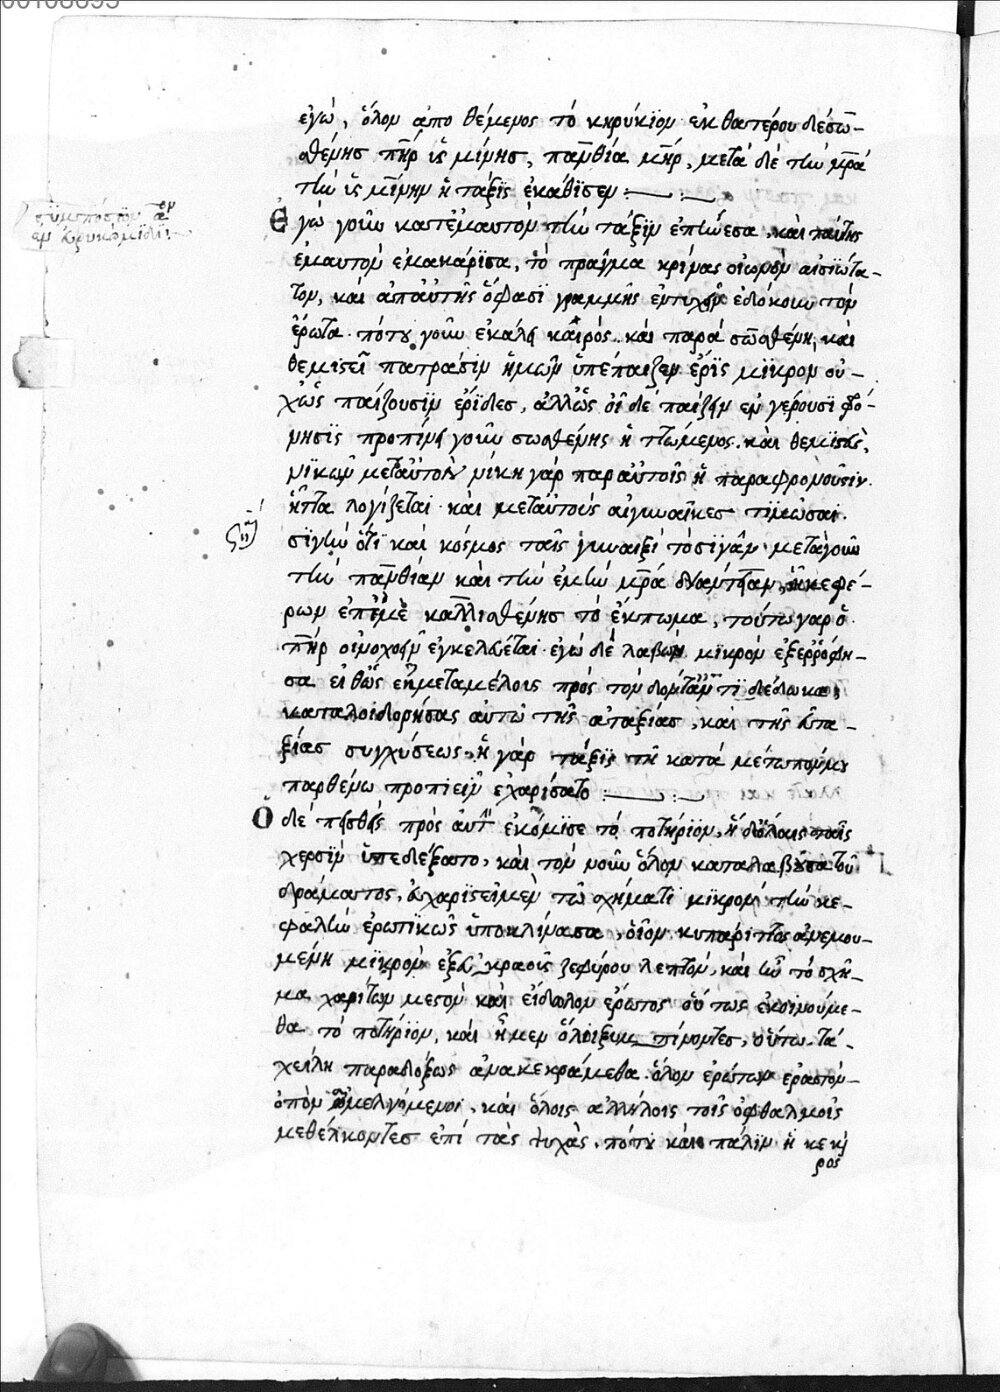 00108693
ἐγὼ, ὅλον ἀποθέμενος τὸ κηρύκιον ἐκ θατέρου δὲ σωσ-
θένης πῆρ ὑσμίνης, πανθία μῆρ, μετὰ δὲ τὴν μρα
τὴν ὑσμίνην ἡ τάξις ἐκάθισεν :—
συμπόσιον αον
ἐν εὐρυκώμιδι
Ἐγὼ γοῦν κατ' ἐμαυτὸν τὴν τάξιν ἐπήνεσα, καὶ ταύτης
ἐμαυτὸν ἐμακάρισα, τὸ πρᾶγμα κρίνας οἰωνὸν αἰσιώτα-
τον, καὶ ἀπ' αὐτῆς ὅ φασι γραμμῆς εὐτυχεῖν ἐδόκουν τὸν
ἔρωτα. πότου γοῦν ἐκάλει καιρὸς. καὶ παρὰ σωσθένη, καὶ
θεμιστεῖ πατράσιν ἡμῶν ὑπέπαιζεν ἔρις μικρὸν οὐ-
χ ὡς παίζουσιν ἔριδες, ἀλλ' ὡς οἶδε παίζειν ἐν γέρουσι φό-
νησις προπίνει γοῦν σωσθένης ἡττώμενος. καὶ θεμιστεὺς,
νικῶν μετ' αὐτὸν νίκη γὰρ παρ' αὐτοῖς ἡ παραφρονοῦσιν
ἧττα λογίζεται. καὶ μετ' αὐτοὺς αἱ γυναῖκες πίνουσαι.
ση
σιγὴν ὅτι καὶ κόσμος ταῖς γυναιξὶ τὸ σιγᾶν. μετὰ γοῦν
τὴν πανθίαν καὶ τὴν ἐμὴν μρα διάντειαν, ἧκε φέ-
ρων ἐπ' ἐμὲ καλλισθένης τὸ ἔκπωμα, τοῦτο γὰρ ὁ
πῆρ οἰνοχοεῖν ἐγκελεύεται. ἐγὼ δὲ λαβὼν μικρὸν ἐξερρόφη-
σα εἰθ' ὡς ἐν μεταμέλοις πρὸς τὸν δόντα ἀντιδέδωκα,
καταλοιδορήσας αὐτῷ τῆς ἀταξίας, καὶ τῆς εὐτα-
ξίας συγχύσεως. ἡ γὰρ τάξις τῇ κατὰ μέτωπόν μου
παρθένῳ προπιεῖν ἐχαρίσατο :—
Ὁ δὲ πεισθεὶς πρὸς αὐτὴν ἐκόμισε τὸ ποτήριον, ἡ δ' ὅλαις ταῖς
χερσὶν ὑπεδέξατο, καὶ τὸν νοῦν ὅλον καταλαβοῦσα τοῦ
δράματος, εὐχαριστεῖ μὲν τῷ σχήματι μικρὸν τὴν κε-
φαλὴν ἐρωτικῶς ὑποκλίνασα, οἷον κυπάριττος ἀνεμου-
μένη μικρὸν ἐξ εὐκραοῦς ζεφύρου λεπτόν, καὶ ἦν τὸ σχῆ-
μα χαρίτων μεστὸν καὶ εἴδωλον ἔρωτος οὕτως ἐκοινούμε-
θα τὸ ποτήριον, καὶ ἦμεν πίνοντες, οὕτω τὰ
χείλη παραδόξως ἀνακεκράμεθα. ὅλον ἐρώτων ἐραστὸν-
ὀπὸν ἀμελγόμενοι, καὶ ὅλοις ἀλλήλοις τοῖς ὀφθαλμοῖς
μεθέλκοντες ἐπὶ τὰς ψυχὰς. πότου καὶ πάλιν ἧκε και
ρος